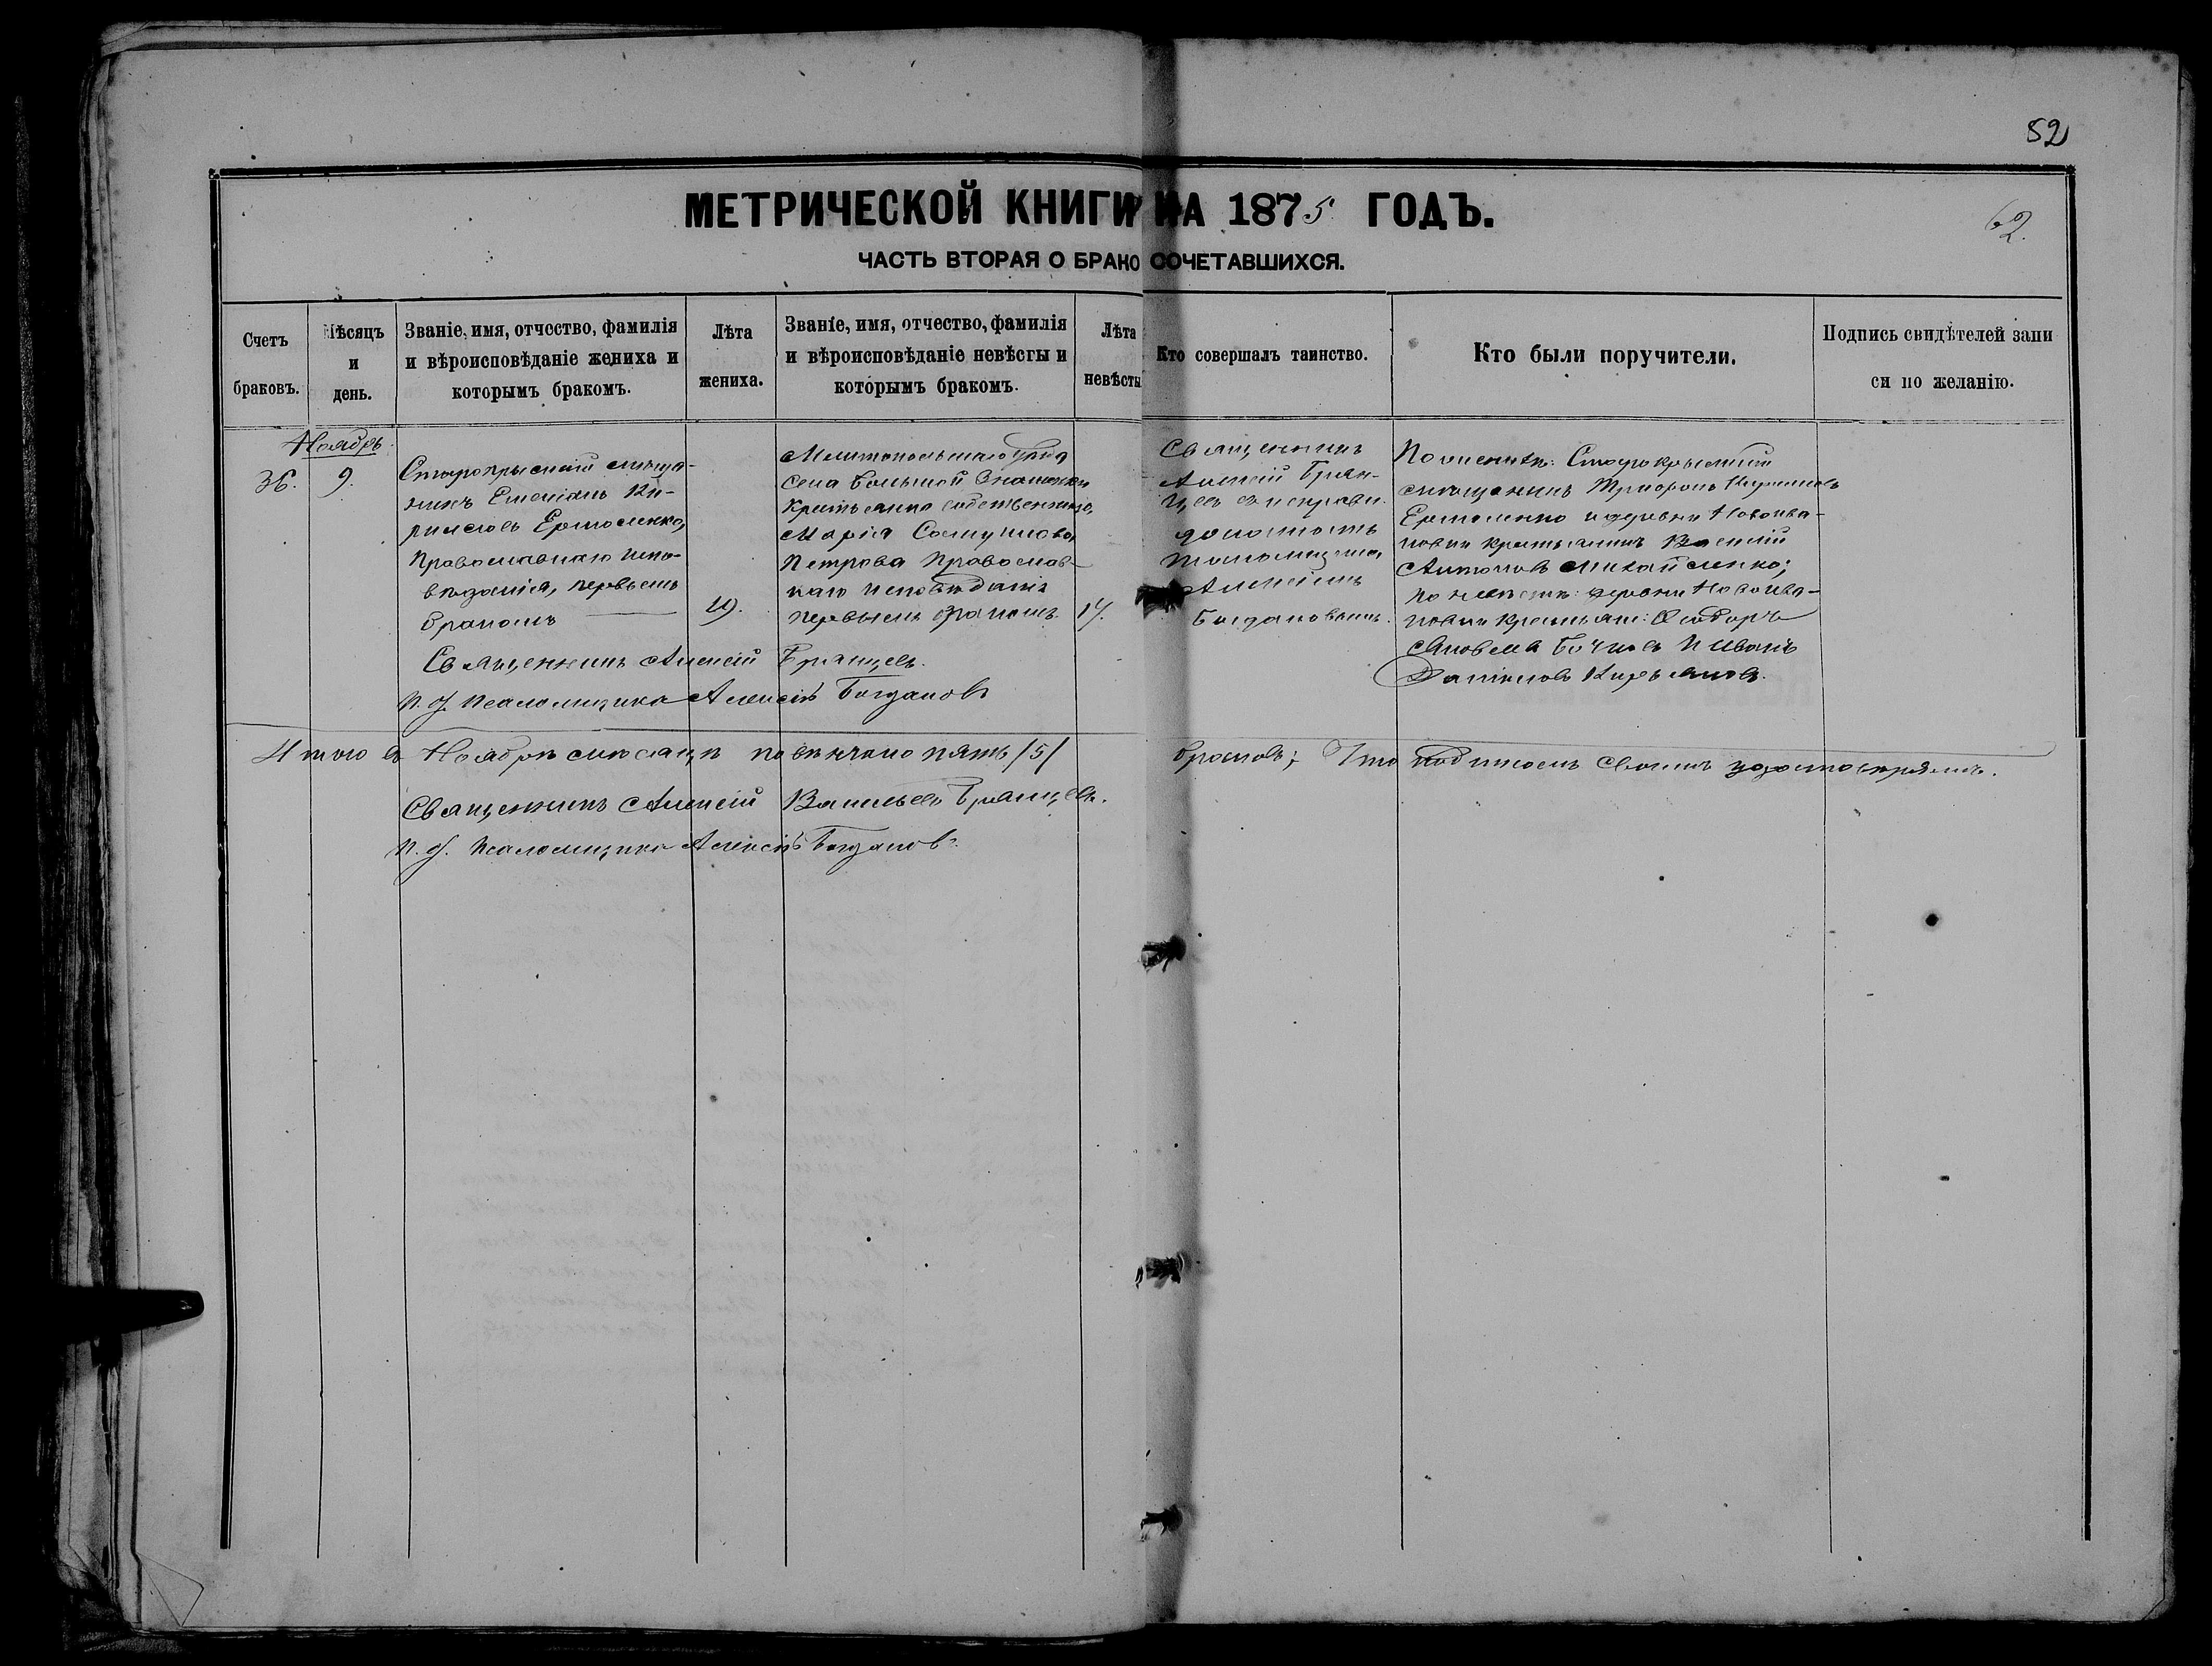 52
МЕТРИЧЕСКОЙ КНИГИ НА 1875 ГОДЪ.
62.
ЧАСТЬ ВТОРАЯ О БРАКОСОЧЕТАВШИХСЯ.
Счетъ
браковъ.
Мѣсяцъ
и
день.
Званіе, имя, отчество, фамилія
и вѣроисповѣданіе жениха и
которымъ бракомъ.
Лѣта
жениха.
Званіе, имя, отчество, фамилія
и вѣроисповѣданіе невѣсты и
которымъ бракомъ.
Лѣта
невѣсты
Кто совершалъ таинство.
Кто были поручители.
Подпись свидѣтелей запи
си по желанію.
Ноябрь
36.
9.
Старокрымскій мѣща-
нинъ Емеліанъ Ки-
рилловъ Ермоленко,
Православнаго испо-
вѣданія, первымъ
бракомъ
19.
Мелитопольскаго уѣзда
села Большой Знаменки
крестьянка собственника,
Марія
Петрова Православ-
наго исповѣданія
первымъ бракомъ.
17.
Священникъ
Алексій Бран-
цевъ съ исправл.
должность
псаломщика
Алексѣемъ
Богдановымъ.
По женихѣ: Старокрымскій
мѣщанинъ Трифонъ Кирилловъ
Ермоленко и деревни Новоива-
новки крестьянинъ Василій
Антоновъ Михайленко;
по невѣстѣ: деревни Новоива-
новки крестьяне: Ѳеодоръ
Яковлевъ и Иванъ
Даніиловъ Кирьяновъ.
Священникъ Алексій Бранцевъ.
И. д. псаломщика Алексѣй Богдановъ
Итого въ Ноябрѣ мѣсяцѣ повѣнчано пять /5/ браковъ; Что подписомъ своимъ удостовѣряемъ.
Священникъ Алексій Васильевъ Бранцевъ.
И. д. Псаломщика Алексѣй Богдановъ.